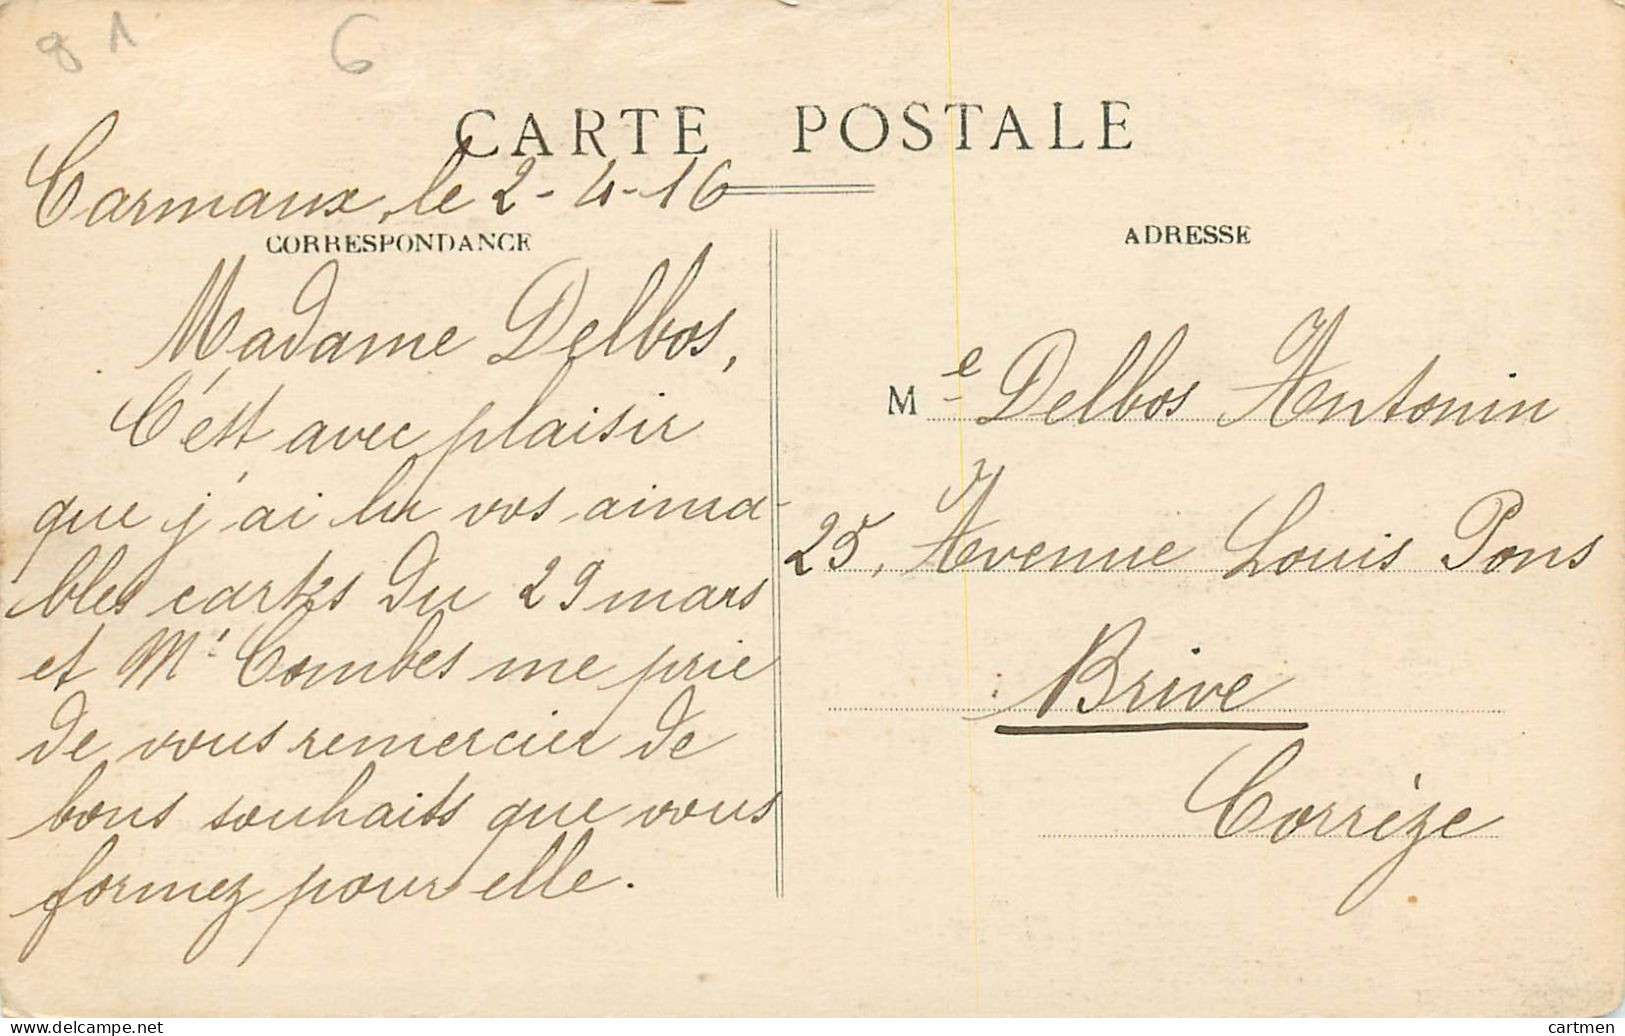 81 6
CARTE POSTALE
Carmaux, le 2-4-16
CORRESPONDANCE
Madame Delbos,
C'est avec plaisir
que j'ai lu vos aima-
bles cartes du 29 mars
et Me Combes me prie
de vous remercier de
bons souhaits que vous
formez pour elle.
ADRESSE
Me Delbos Antonin
25, Avenue Louis Pons
Brive
Corrèze
www.delcampe.net
cartmen